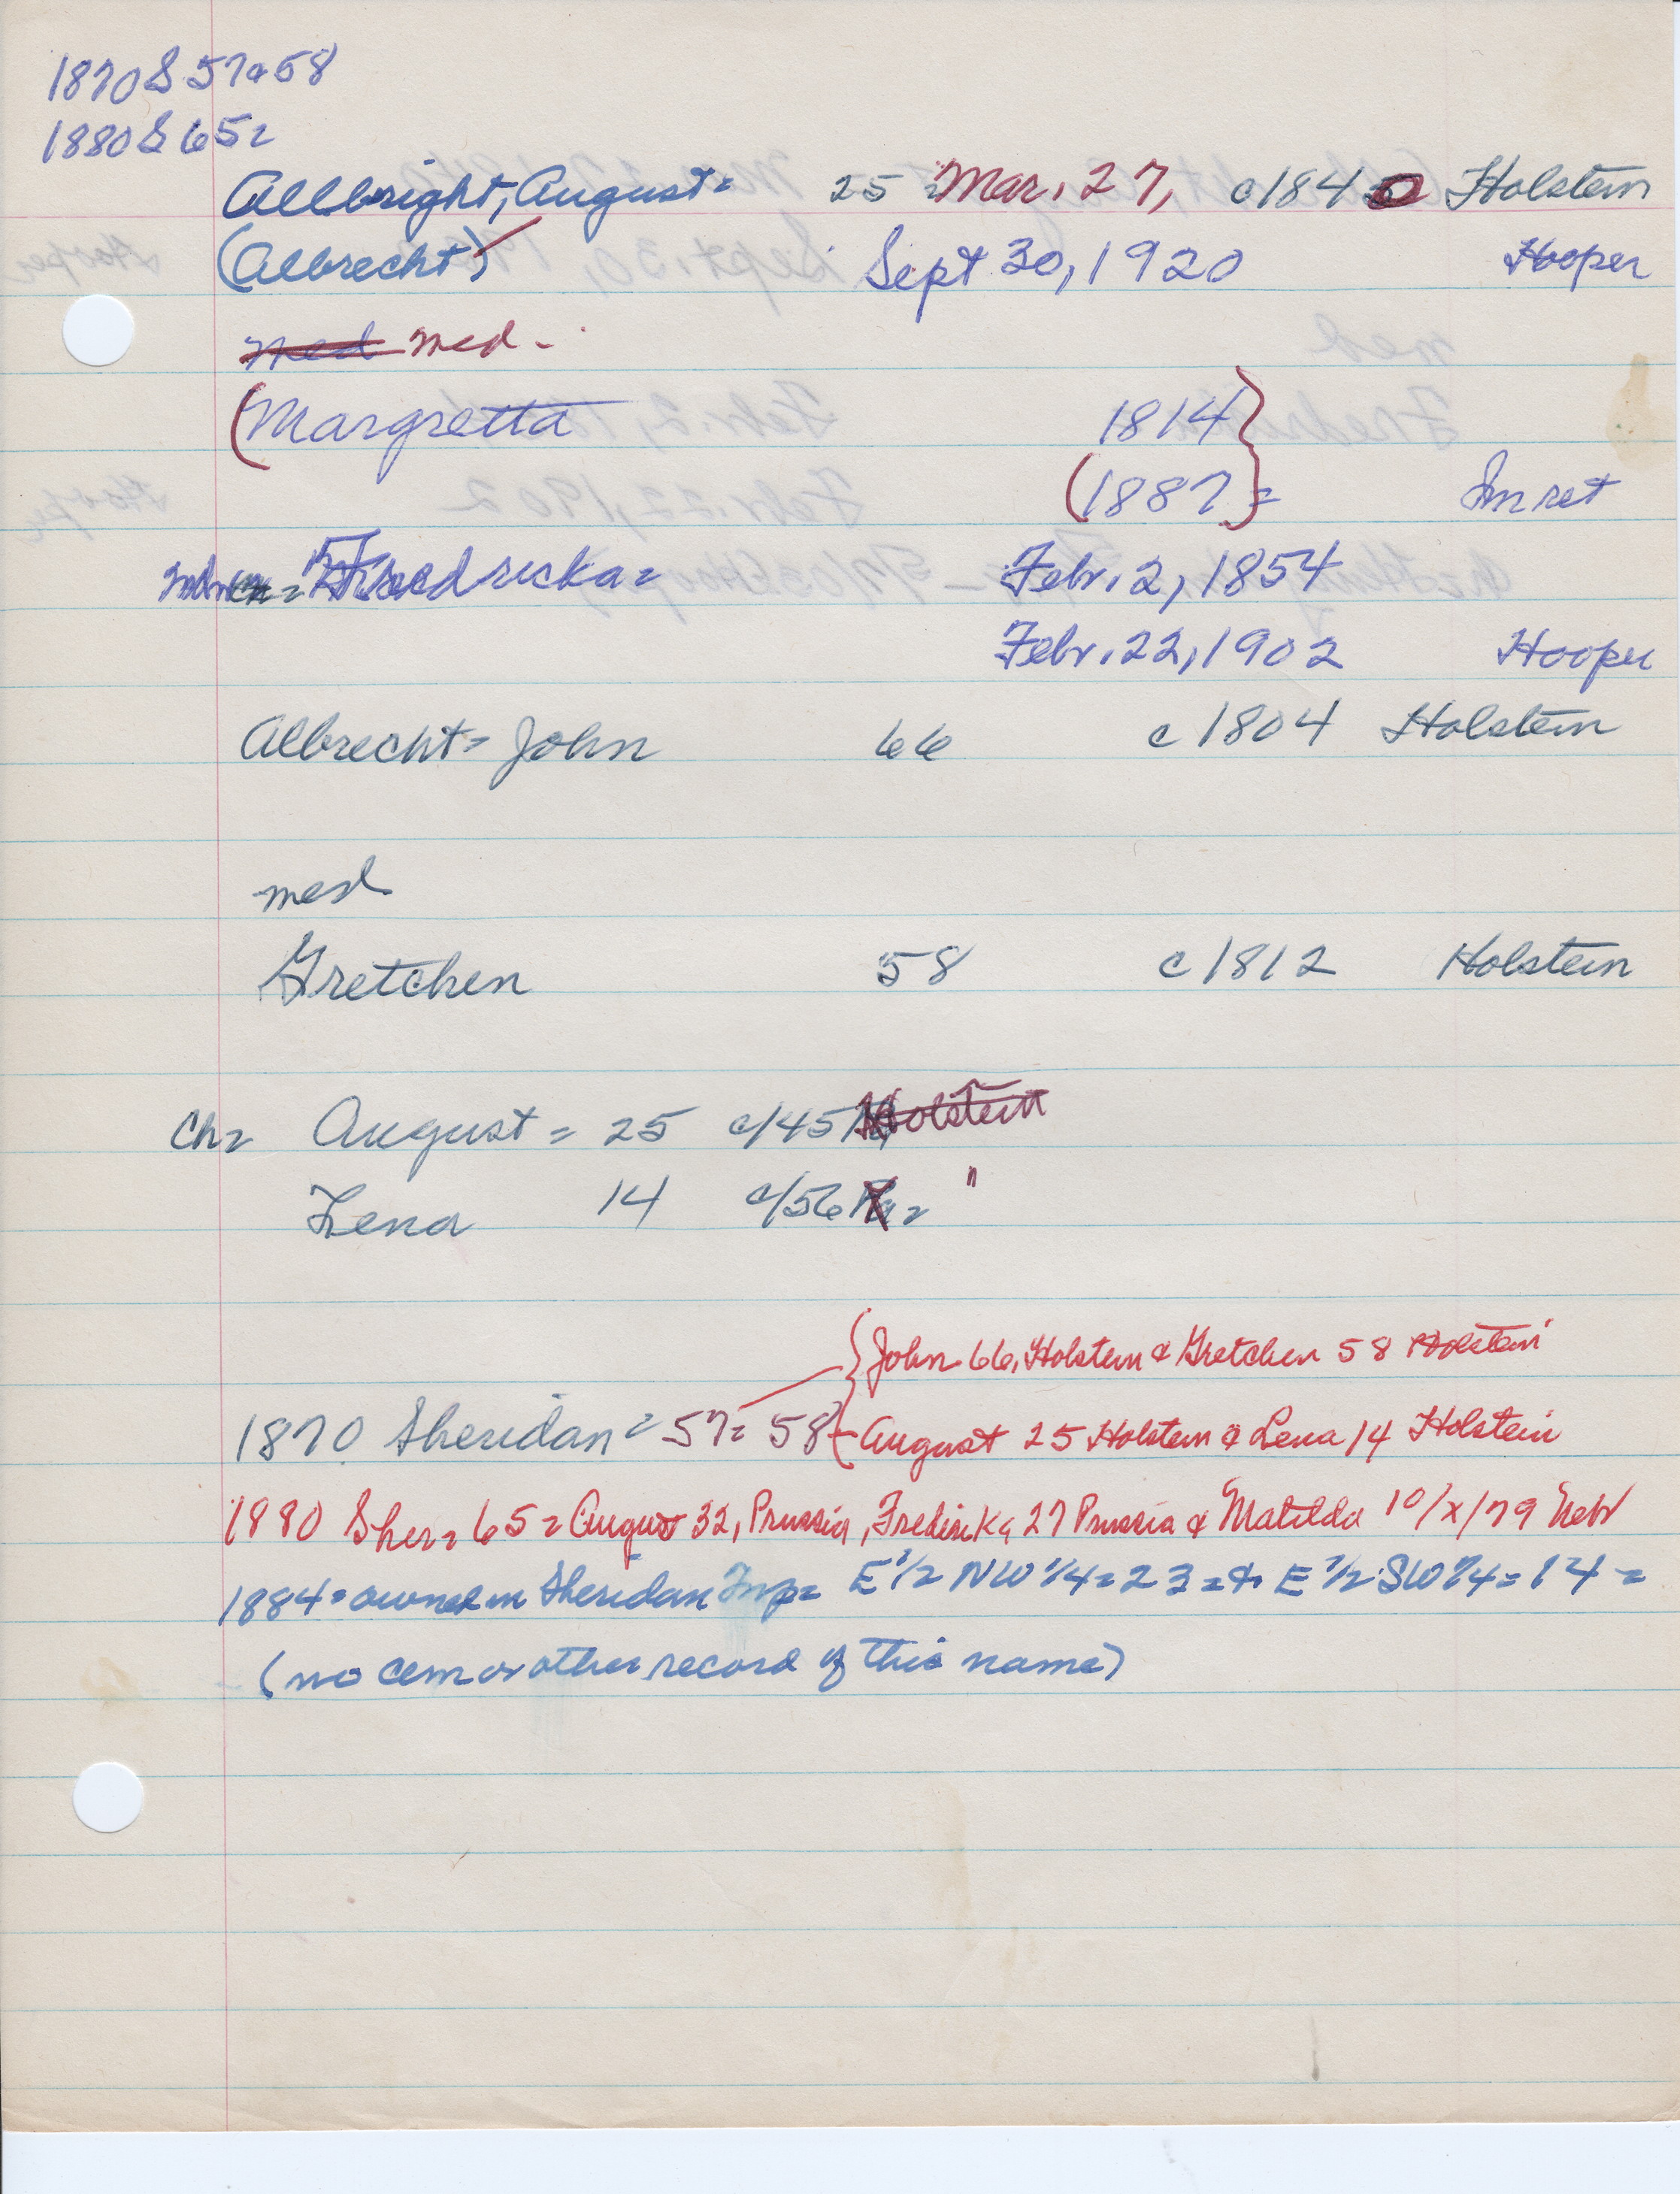 1870 S 57 & 58
1880 S 65=
Allbright, August = 25 = Mar. 27, c1840 Holstein
(Albrecht) Sept 30, 1920 Hooper
med med -
(Margretta 1814}
(1887} = Im ret
= Fredricka = Febr. 2, 1854
Febr. 22, 1902 Hooper
Albrecht = John 66 c1804 Holstein
med
Gretchen 58 c1812 Holstein
Ch= August = 25 c/45 Holstein
Lena 14 c/56 = "
{John 66, Holstein & Gretchen 58 Holstein
1870 Sheridan = 57= 58 {August 25 Holstein & Lena 14 Holstein
1880 Sher= 65= August 32, Prussia, Frederika 27 Prussia & Matilda 10/x/79 Nebr
1884= owned in Sheridan Twp= E 1/2 NW 1/4 = 23 = & E 1/2 SW 1/4 = 14 =
(no cem or other record of this name)